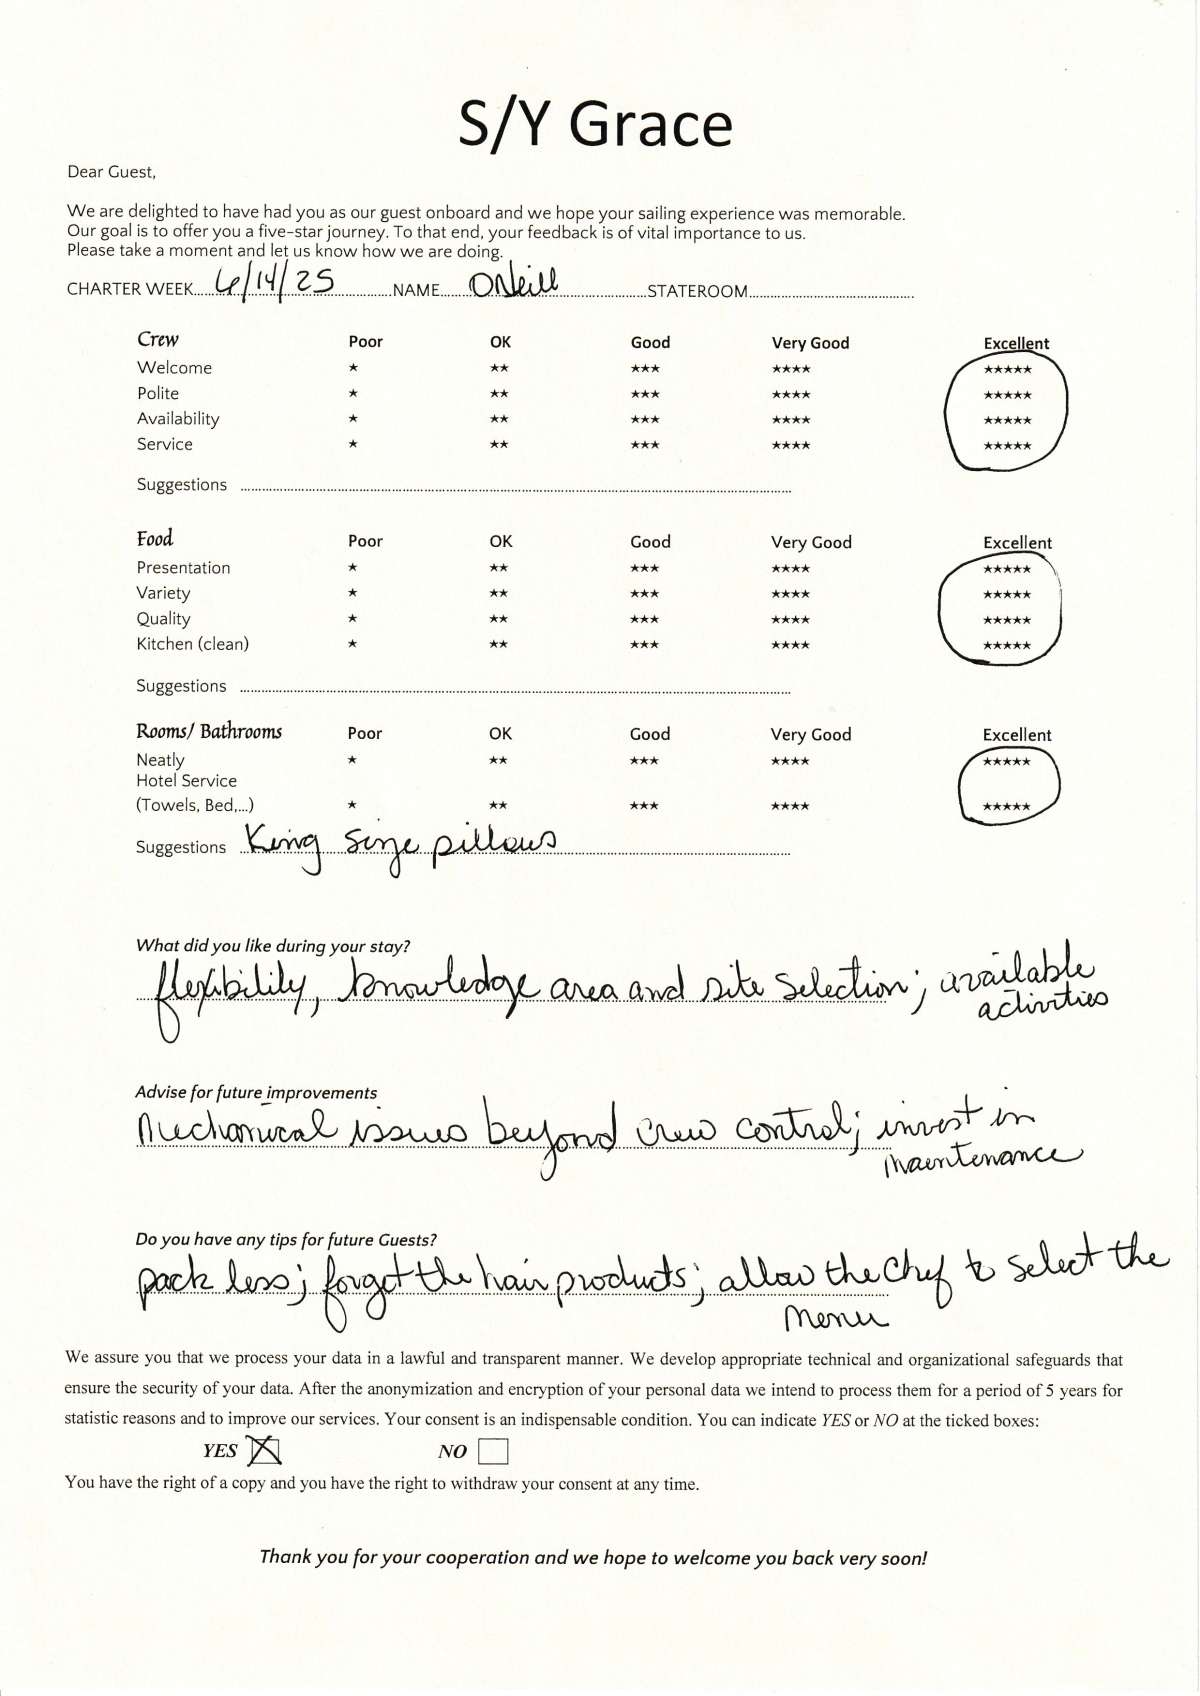 S/Y Grace
Dear Guest,
We are delighted to have had you as our guest onboard and we hope your sailing experience was memorable.
Our goal is to offer you a five-star journey. To that end, your feedback is of vital importance to us.
Please take a moment and let us know how we are doing.
CHARTER WEEK 6/14/25 NAME ONeill STATEROOM
Crew Poor OK Good Very Good Excellent
Welcome ★ ★★ ★★★ ★★★★ ★★★★★
Polite ★ ★★ ★★★ ★★★★ ★★★★★
Availability ★ ★★ ★★★ ★★★★ ★★★★★
Service ★ ★★ ★★★ ★★★★ ★★★★★
Suggestions
Food Poor OK Good Very Good Excellent
Presentation ★ ★★ ★★★ ★★★★ ★★★★★
Variety ★ ★★ ★★★ ★★★★ ★★★★★
Quality ★ ★★ ★★★ ★★★★ ★★★★★
Kitchen (clean) ★ ★★ ★★★ ★★★★ ★★★★★
Suggestions
Rooms/ Bathrooms Poor OK Good Very Good Excellent
Neatly ★ ★★ ★★★ ★★★★ ★★★★★
Hotel Service
(Towels, Bed,...) ★ ★★ ★★★ ★★★★ ★★★★★
Suggestions King size pillows
What did you like during your stay?
flexibility, knowledge area and site selection; available
activities
Advise for future improvements
Mechanical issues beyond crew control; invest in
maintenance
Do you have any tips for future Guests?
pack less; forget the hair products; allow the Chef to select the
menu
We assure you that we process your data in a lawful and transparent manner. We develop appropriate technical and organizational safeguards that
ensure the security of your data. After the anonymization and encryption of your personal data we intend to process them for a period of 5 years for
statistic reasons and to improve our services. Your consent is an indispensable condition. You can indicate YES or NO at the ticked boxes:
YES NO
You have the right of a copy and you have the right to withdraw your consent at any time.
Thank you for your cooperation and we hope to welcome you back very soon!